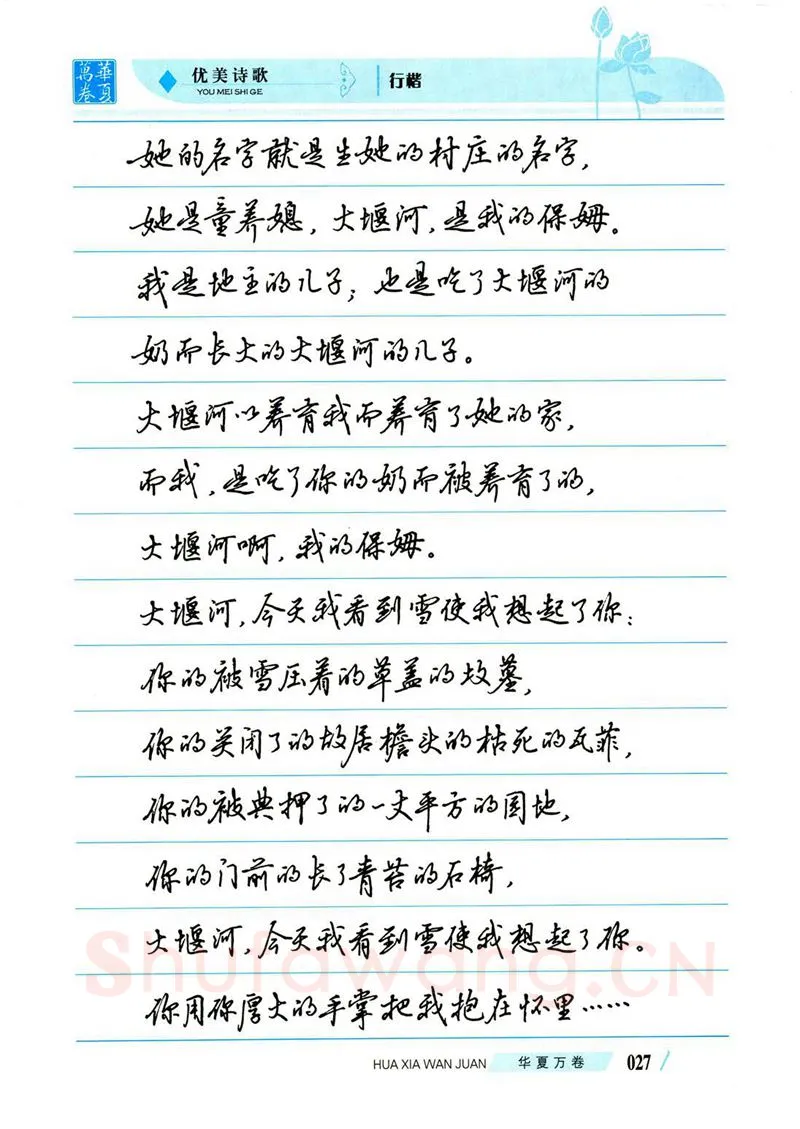 華夏萬卷
优美诗歌
YOU MEI SHI GE
行楷
她的名字就是生她的村庄的名字，
她是童养媳，大堰河，是我的保姆。
我是地主的儿子；也是吃了大堰河的
奶而长大的大堰河的儿子。
大堰河以养育我而养育了她的家，
而我，是吃了你的奶而被养育了的，
大堰河啊，我的保姆。
大堰河，今天我看到雪使我想起了你：
你的被雪压着的草盖的坟墓，
你的关闭了的故居檐头的枯死的瓦菲，
你的被典押了的一丈平方的园地，
你的门前的长了青苔的石椅，
大堰河，今天我看到雪使我想起了你。
你用你厚大的手掌把我抱在怀里……
Shufawang.CN
HUA XIA WAN JUAN
华夏万卷
027